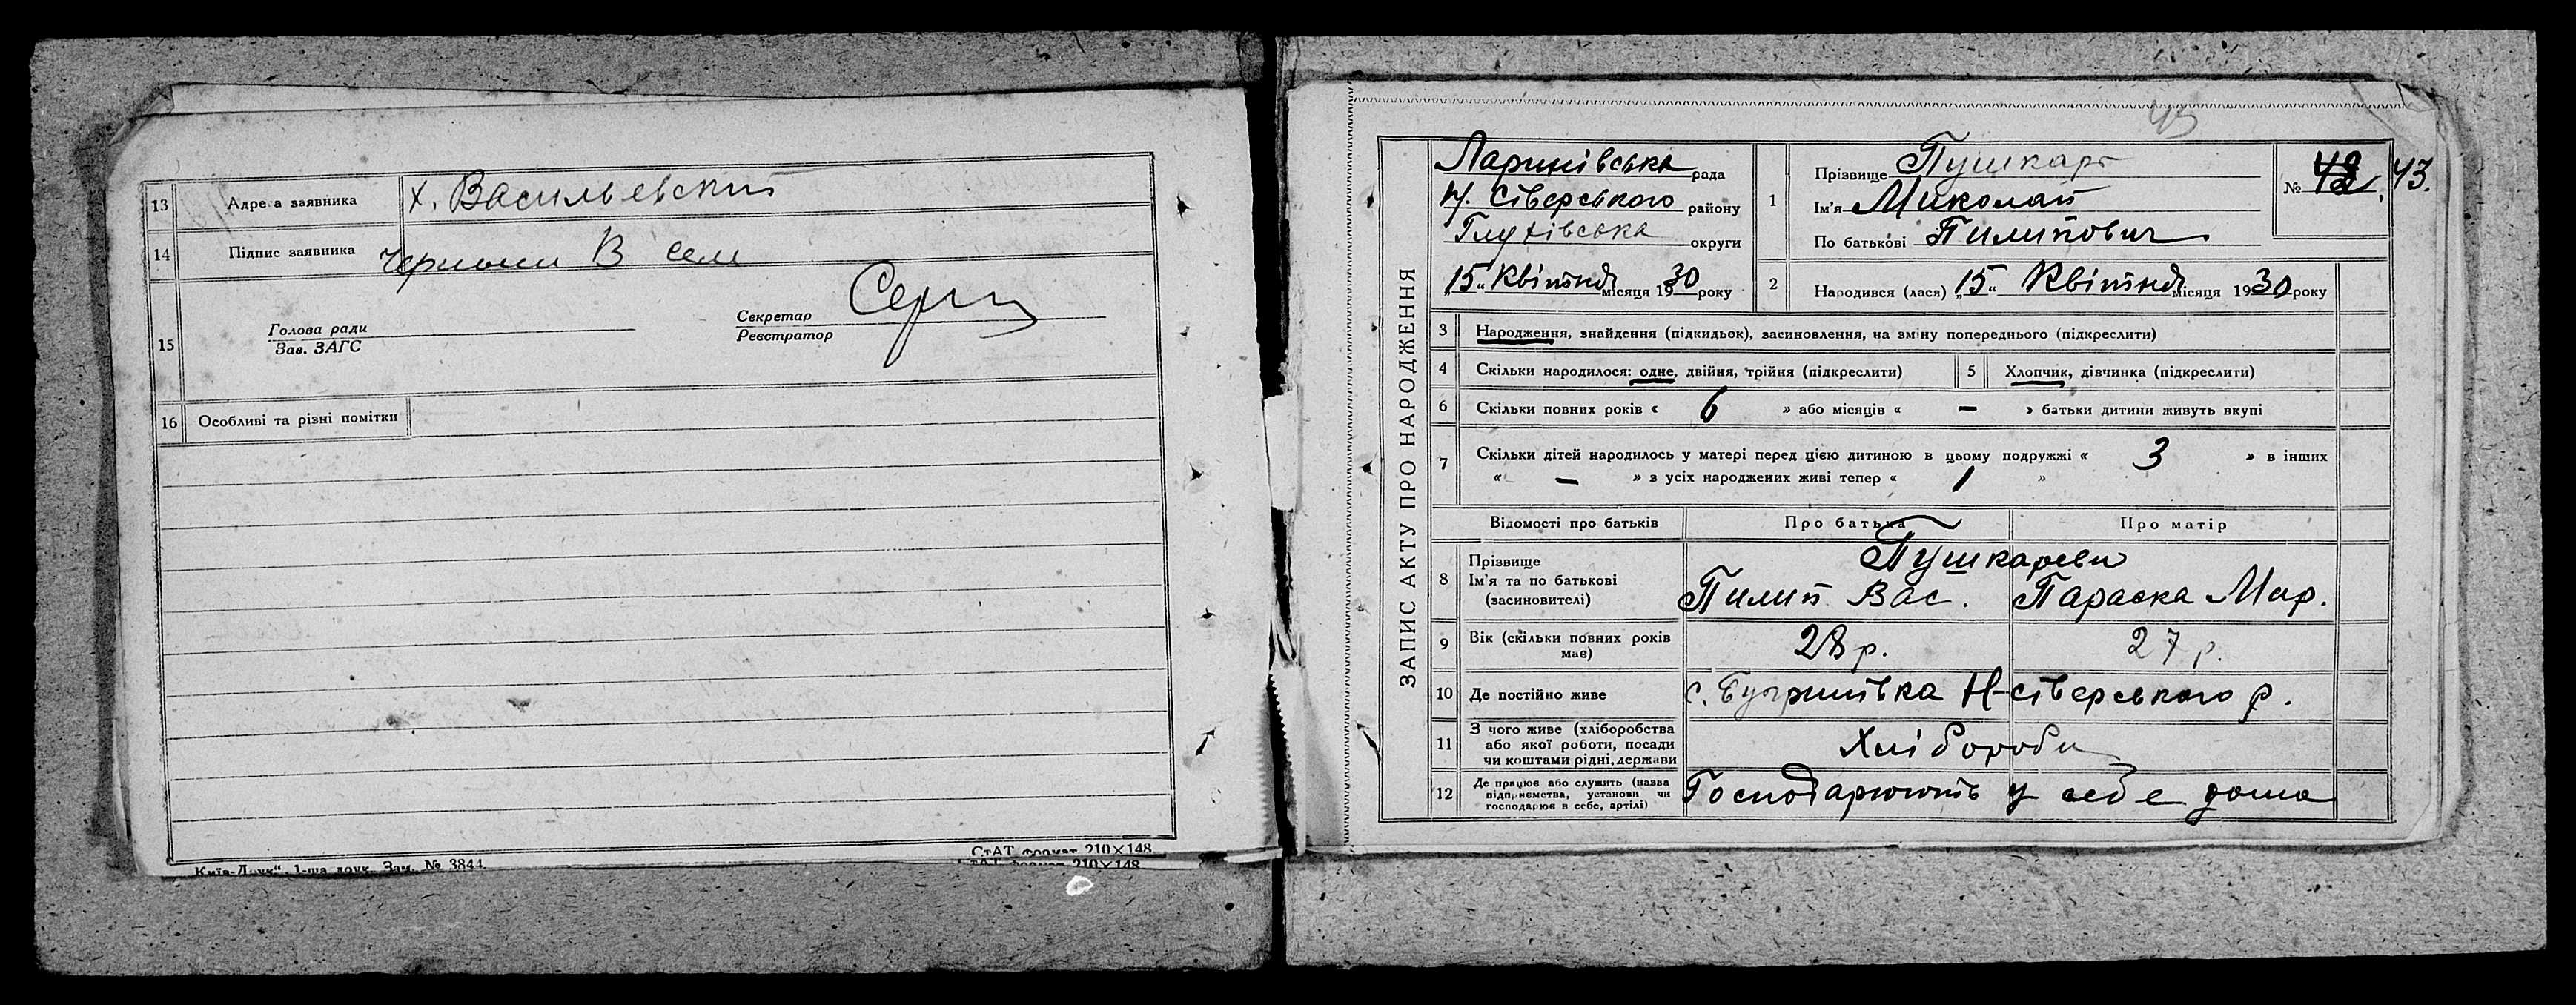 13 Адреса заявника х. Васильевский
14 Підпис заявника
15 Голова ради
Зав. ЗАГС
Секретар
Реєстратор
16 Особливі та різні помітки
Київ-Друк", 1-ша друк. Зам. № 3844
СтАТ формат 210×148
СтАТ формат 210×148
45
ЗАПИС АКТУ ПРО НАРОДЖЕННЯ
Ларинівська рада
Н. Сіверського району
Глухівська округи
"15" Квітня місяця 1930 року
1 Прізвище Пушкарь
Ім'я Миколай
По батькові Пилипович
№ 42 43.
2 Народився (лася) "15" Квітня місяця 1930 року
3 Народження, знайдення (підкидьок), засиновлення, на зміну попереднього (підкреслити)
4 Скільки народилося: одне, двійня, трійня (підкреслити)
5 Хлопчик, дівчинка (підкреслити)
6 Скільки повних років « 6 » або місяців « – » батьки дитини живуть вкупі
7 Скільки дітей народилось у матері перед цією дитиною в цьому подружжі « 3 » в інших
« – » з усіх народжених живі тепер « 1 »
Відомості про батьків Про батька Про матір
8 Прізвище
Ім'я та по батькові
(засиновителі)
Пушкареви
Пилип Вас. Параска Мар.
9 Вік (скільки повних років
має)
28 р. 27 р.
10 Де постійно живе с. Бугринівка Н-сіверського р.
11 З чого живе (хліборобства
або якої роботи, посади
чи коштами рідні, держави
Хлібороби
12 Де працює або служить (назва
підприємства, установи чи
господарює в себе, артілі)
Господарюють у себе дома